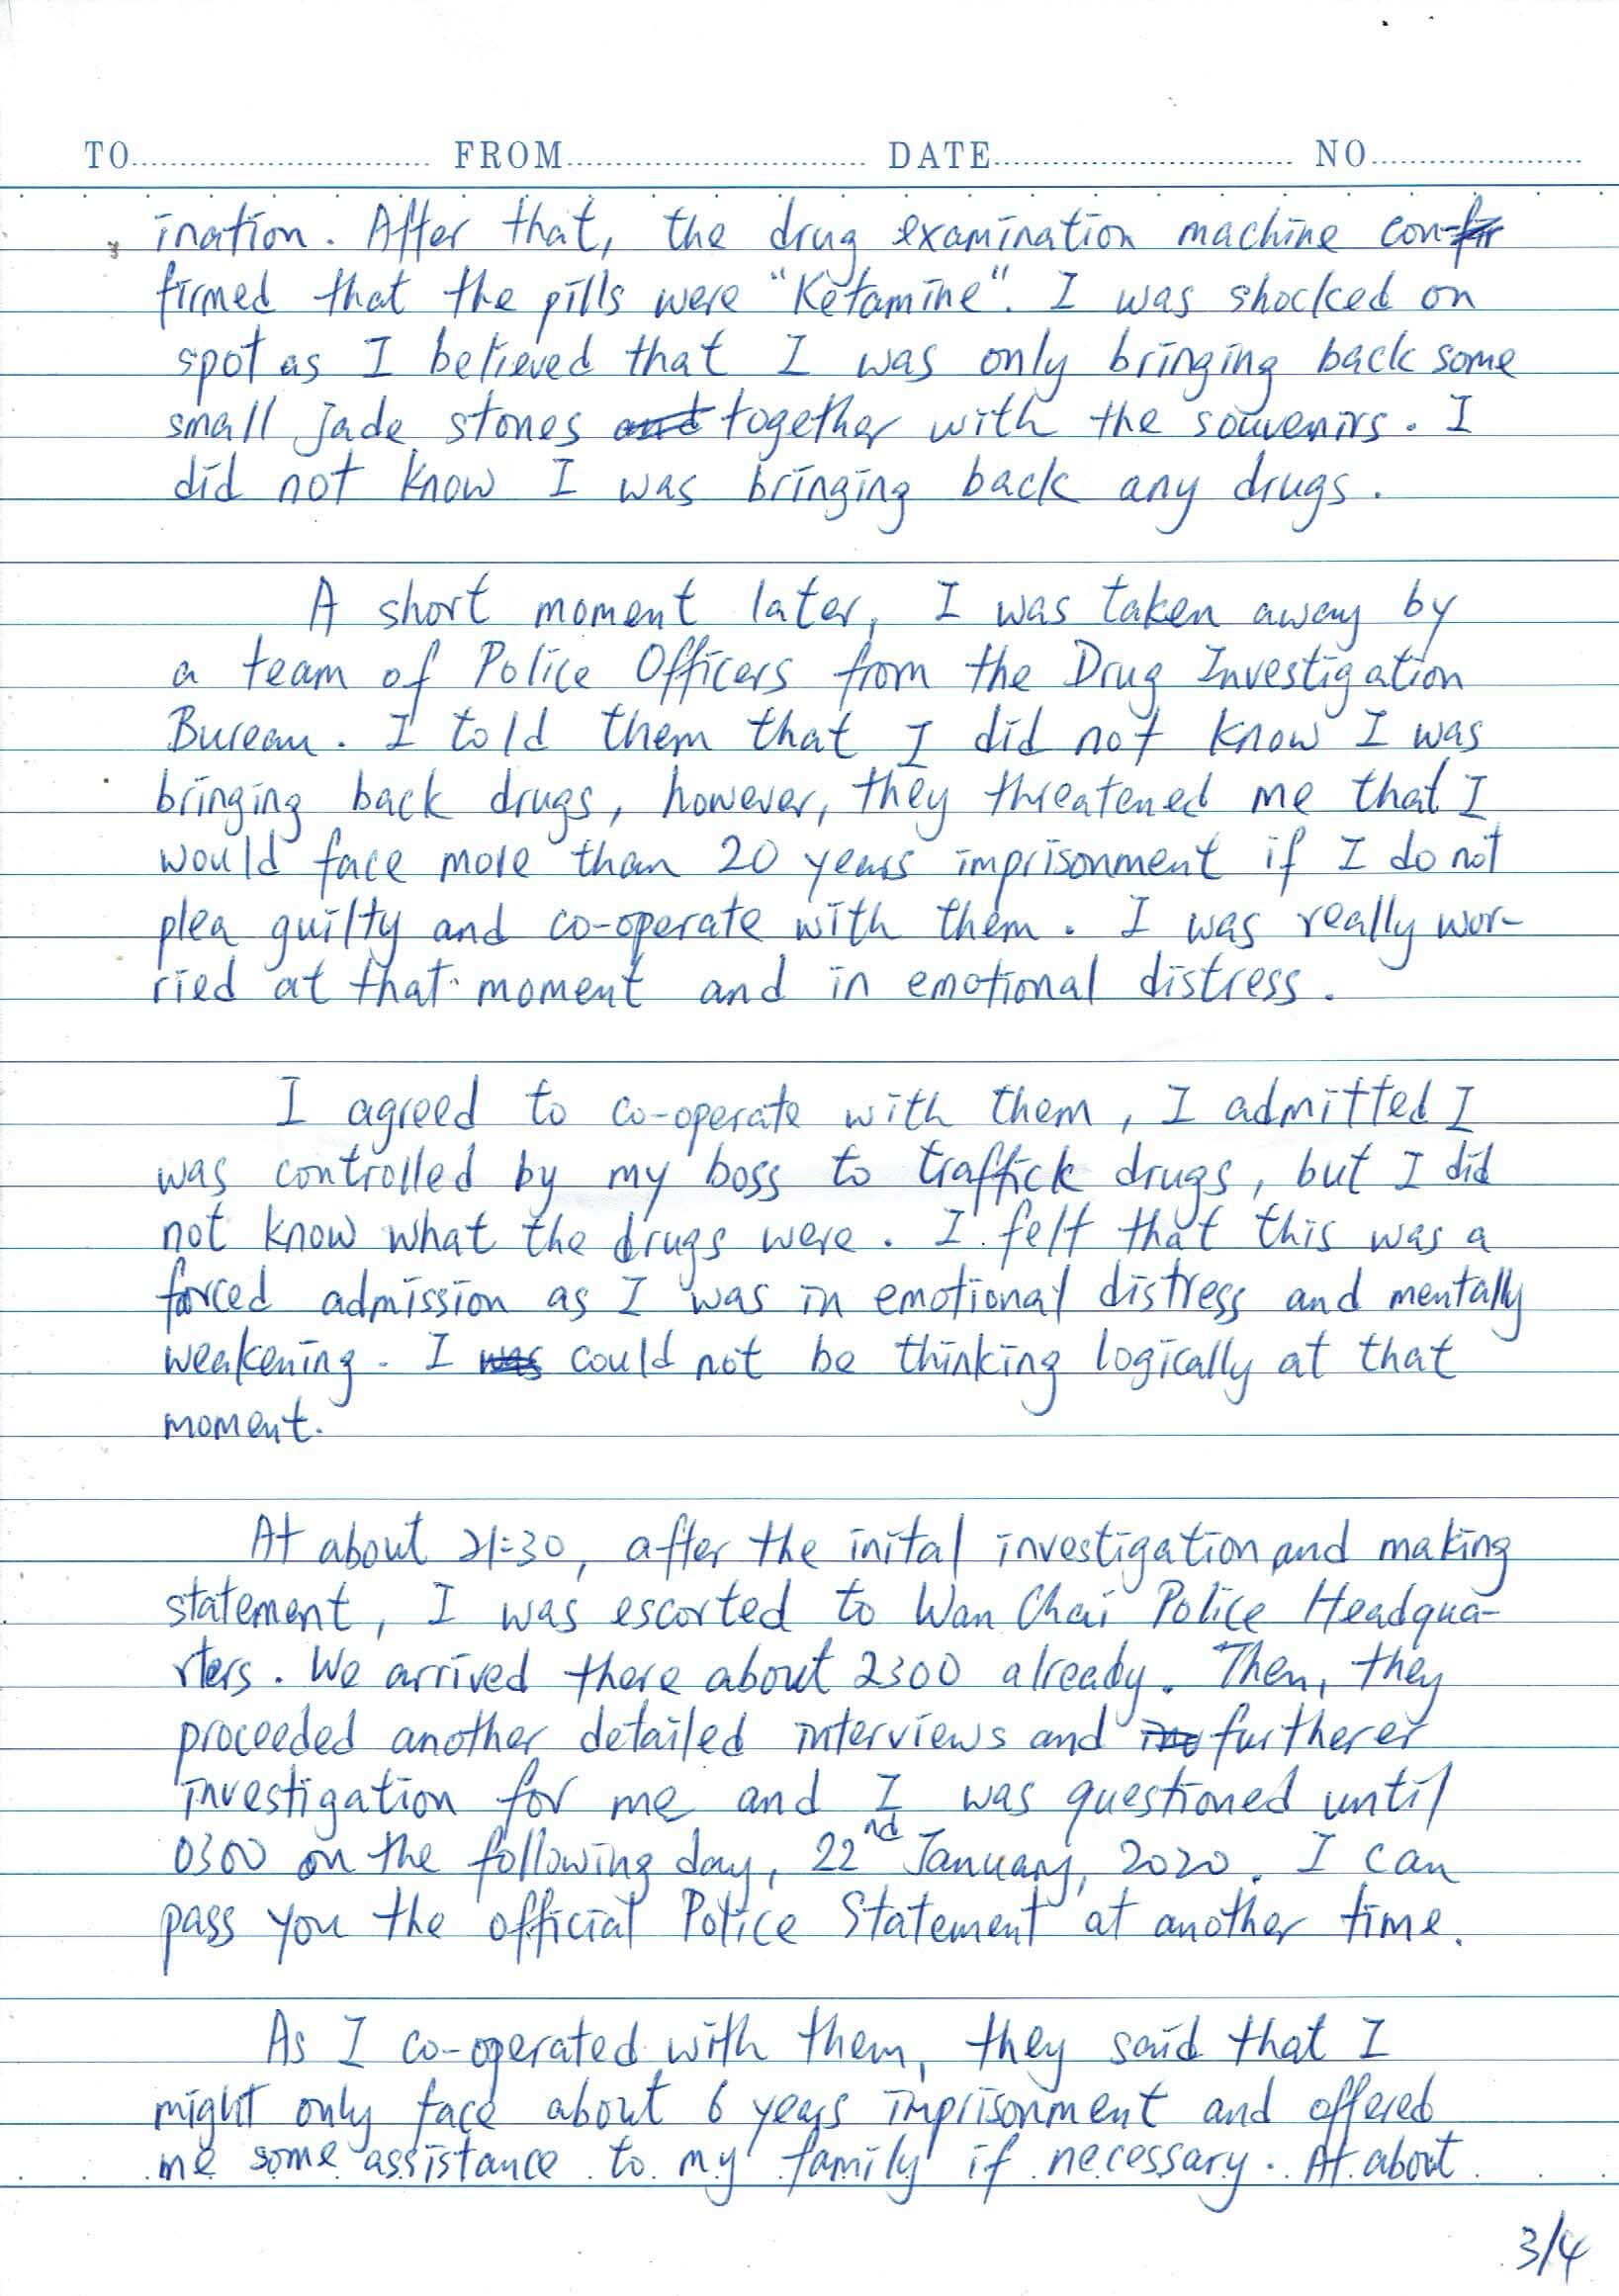 TO.............................. FROM.............................. DATE.............................. NO.....................
ination. After that, the drug examination machine con-
firmed that the pills were "Ketamine". I was shocked on
spot as I believed that I was only bringing back some
small jade stones and together with the souvenirs. I
did not know I was bringing back any drugs.
A short moment later, I was taken away by
a team of Police Officers from the Drug Investigation
Bureau. I told them that I did not know I was
bringing back drugs, however, they threatened me that I
would face more than 20 years imprisonment if I do not
plea guilty and co-operate with them. I was really wor-
ried at that moment and in emotional distress.
I agreed to co-operate with them, I admitted I
was controlled by my boss to traffick drugs, but I did
not know what the drugs were. I felt that this was a
forced admission as I was in emotional distress and mentally
weakening. I was could not be thinking logically at that
moment.
At about 21:30, after the inital investigation and making
statement, I was escorted to Wan Chai Police Headqua-
rters. We arrived there about 2300 already. Then, they
proceeded another detailed interviews and furtherer
investigation for me and I was questioned until
0300 on the following day, 22nd January, 2020. I can
pass you the official Police Statement at another time.
As I co-operated with them, they said that I
might only face about 6 years imprisonment and offered
me some assistance to my family if necessary. At about
3/4